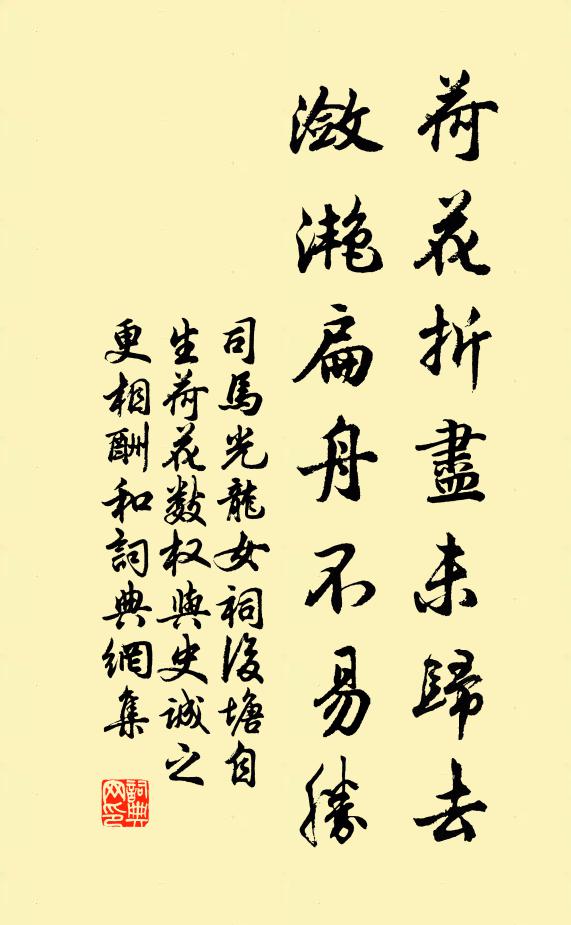 荷花折盡未歸去
瀲灧扁舟不易勝
司馬光龍女祠後塘自
生荷花数权與史誠之
更相酬和詞典網集
詞典
网印